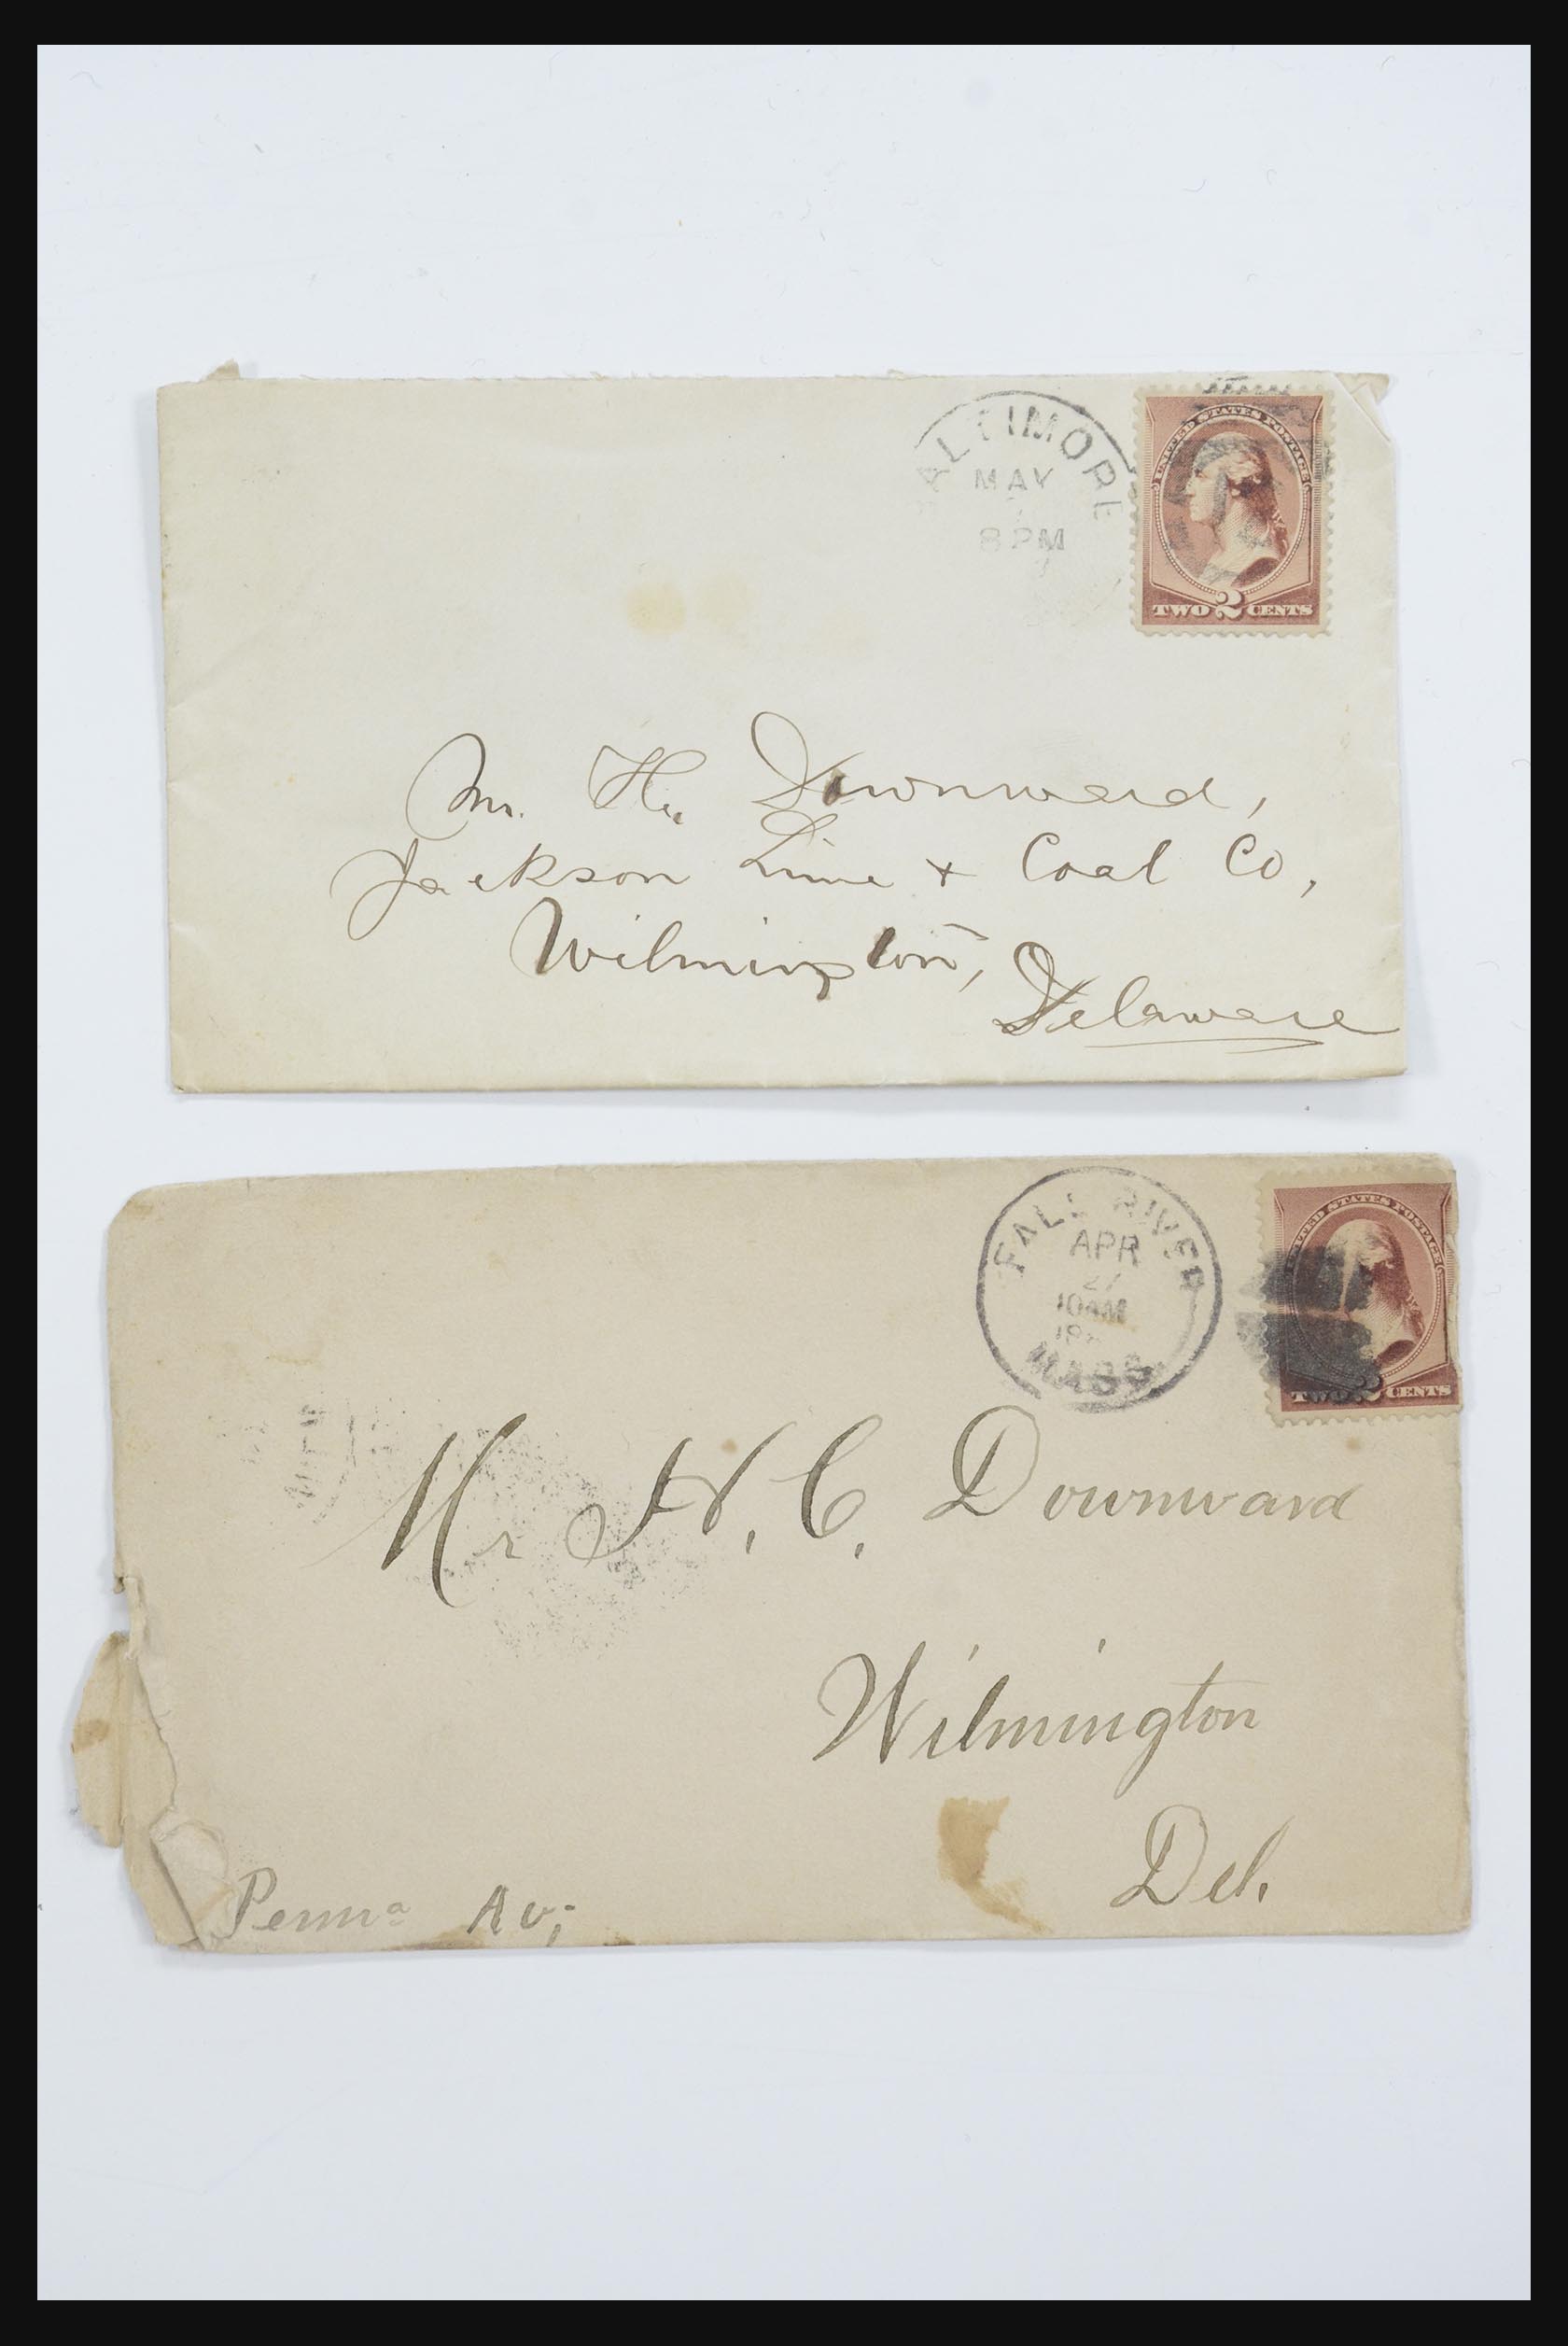 BALTIMORE
MAY
8PM
UNITED STATES POSTAGE
TWO 2 CENTS
Mr. H. Downward,
Jackson Lime + Coal Co,
Wilmington,
Delaware
FALL RIVER
APR
27
10AM
MASS
UNITED STATES POSTAGE
TWO 2 CENTS
Mr H. C. Downward
Wilmington
Del.
Penna Av;